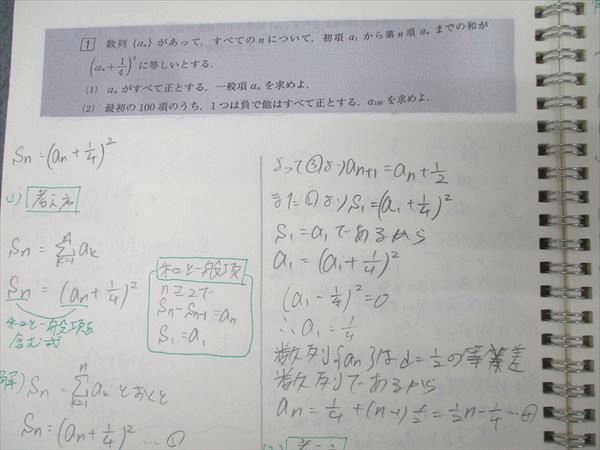 1 数列{aₙ}があって,すべてのnについて,初項 a₁ から第n項 aₙ までの和が
(aₙ+1/4)² に等しいとする.
(1) aₙ がすべて正とする.一般項 aₙ を求めよ.
(2) 最初の100項のうち,1つは負で他はすべて正とする.a₁₀₀ を求めよ.
Sₙ=(aₙ+1/4)²
(1) 考え方
Sₙ=Σ[k=1→n]aₖ
Sₙ=(aₙ+1/4)²
和と一般項を
含む式
和と一般項
n≧2で
Sₙ-Sₙ₋₁=aₙ
S₁=a₁
解) Sₙ=Σ[k=1→n]aₖとおくと
Sₙ=(aₙ+1/4)² …①
よって③よりaₙ₊₁=aₙ+1/2
また①よりS₁=(a₁+1/4)²
S₁=a₁であるから
a₁=(a₁+1/4)²
(a₁-1/4)²=0
∴a₁=1/4
数列{aₙ}はd=1/2の等差
数列であるから
aₙ=1/4+(n-1)1/2=1/2n-1/4…④